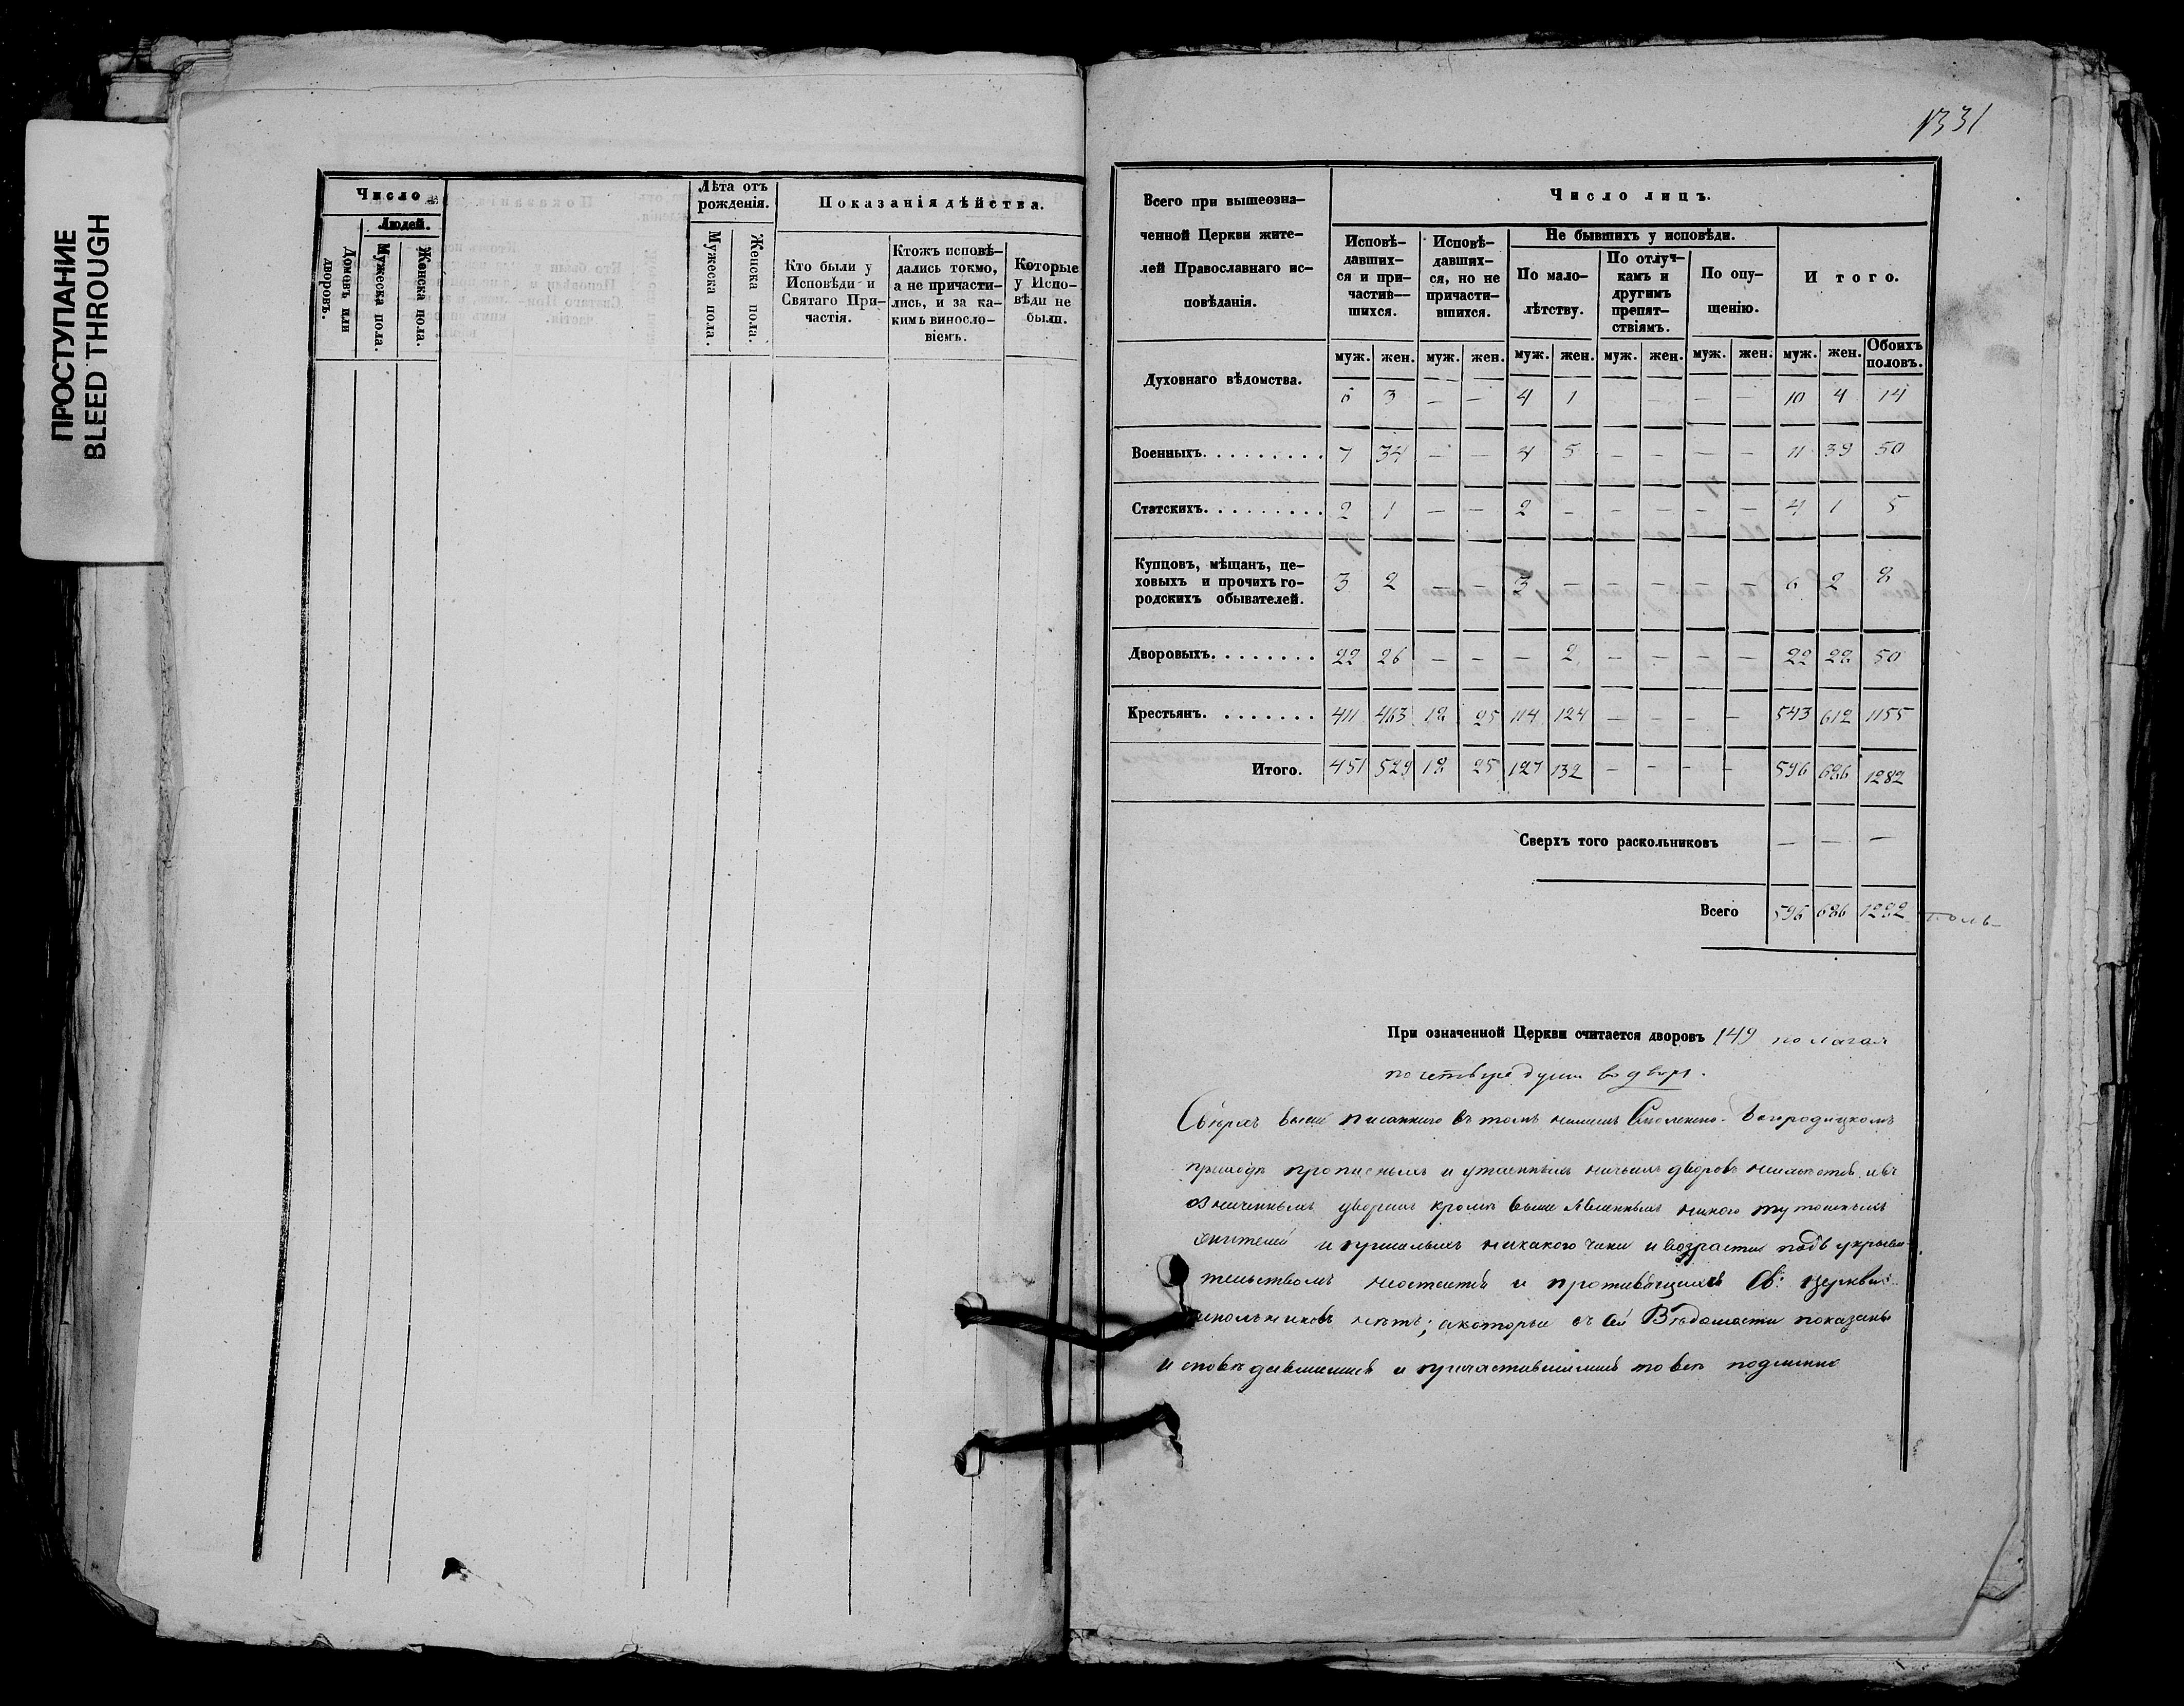 ПРОСТУПАНИЕ
BLEED THROUGH
Число
Людей.
Домовъ или дворовъ.
Мужеска пола.
Женска пола.
Лѣта отъ рожденія.
Мужеска пола.
Женска пола.
Показанія дѣйства.
Кто были у Исповѣди и Святаго При-
частія.
Ктожъ исповѣ-
дались токмо,
а не причасти-
лись, и за ка-
кимъ виносло-
віемъ.
Которые
у Испо-
вѣди не
были.
1331
Всего при вышеозна-
ченной Церкви жите-
лей Православнаго ис-
повѣданія.
Число лицъ.
Исповѣ-
давших-
ся и при-
частив-
шихся.
Исповѣ-
давших-
ся, но не
причасти-
вшихся.
Не бывшихъ у исповѣди.
По мало-
лѣтству.
По отлуч-
камъ и
другимъ
препят-
ствіямъ.
По опу-
щенію.
Итого.
муж. жен. муж. жен. муж. жен. муж. жен. муж. жен. муж. жен. Обоихъ половъ.
Духовнаго вѣдомства. 6 3 — — 4 1 — — — 10 4 14
Военныхъ. 7 34 — — 4 5 — — — — 11 39 50
Статскихъ. 2 1 — — 2 — — — — — 4 1 5
Купцовъ, мѣщанъ, це-
ховыхъ и прочихъ го-
родскихъ обывателей. 3 2 — — 3 — — — — — 6 2 8
Дворовыхъ. 22 26 — — — 2 — — — — 22 28 50
Крестьянъ. 411 463 18 25 114 124 — — — — 543 612 1155
Итого. 451 529 18 25 127 132 — — — — 596 686 1282
Сверхъ того раскольниковъ — — —
Всего 596 686 1282
При означенной Церкви считается дворовъ 149 полагая
по четыре души во дворѣ.
Сверхъ выше писаннаго въ томъ нашемъ Смоленско-Богородицкомъ
приходѣ прописныхъ и утаенныхъ ничьихъ дворовъ
означенныхъ дворахъ кромѣ выше никого тутошныхъ
жителей и пришлыхъ никакого чина и возраста подъ укрыва-
тельствомъ и Св: церкви
нѣтъ; а которые въ сей Вѣдомости показаны
исповѣдавшимися и причастившимися то всѣ подлинно